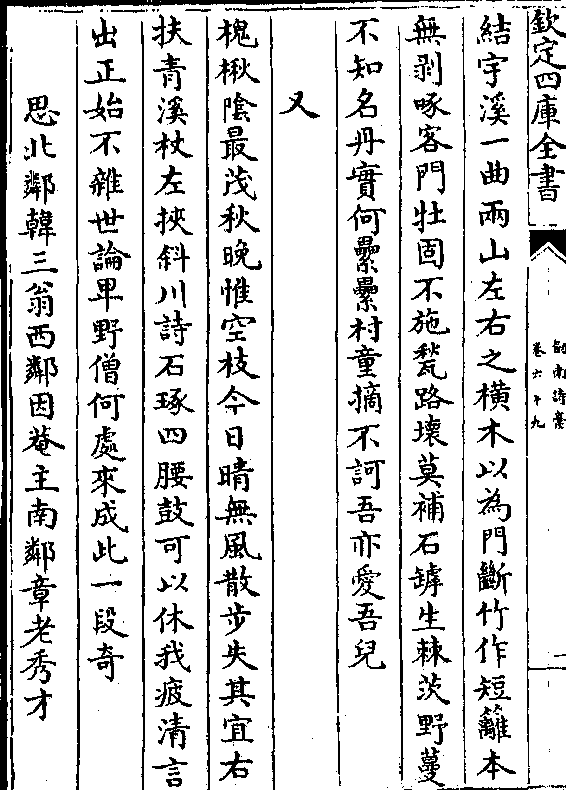 欽定四庫全書
劒南詩藁
卷六十九
結宇溪一曲兩山左右之横木以為門斷竹作短籬本
無剥啄客門牡固不施甃路壊莫補石罅生棘茨野蔓
不知名丹實何纍纍村童摘不訶吾亦愛吾兒
又
槐楸陰最茂秋晚惟空枝今日晴無風散步失其宜右
扶青溪杖左挾斜川詩石琢四腰鼓可以休我疲清言
出正始不雜世論卑野僧何處來成此一段奇
思北鄰韓三翁西鄰因菴主南鄰章老秀才